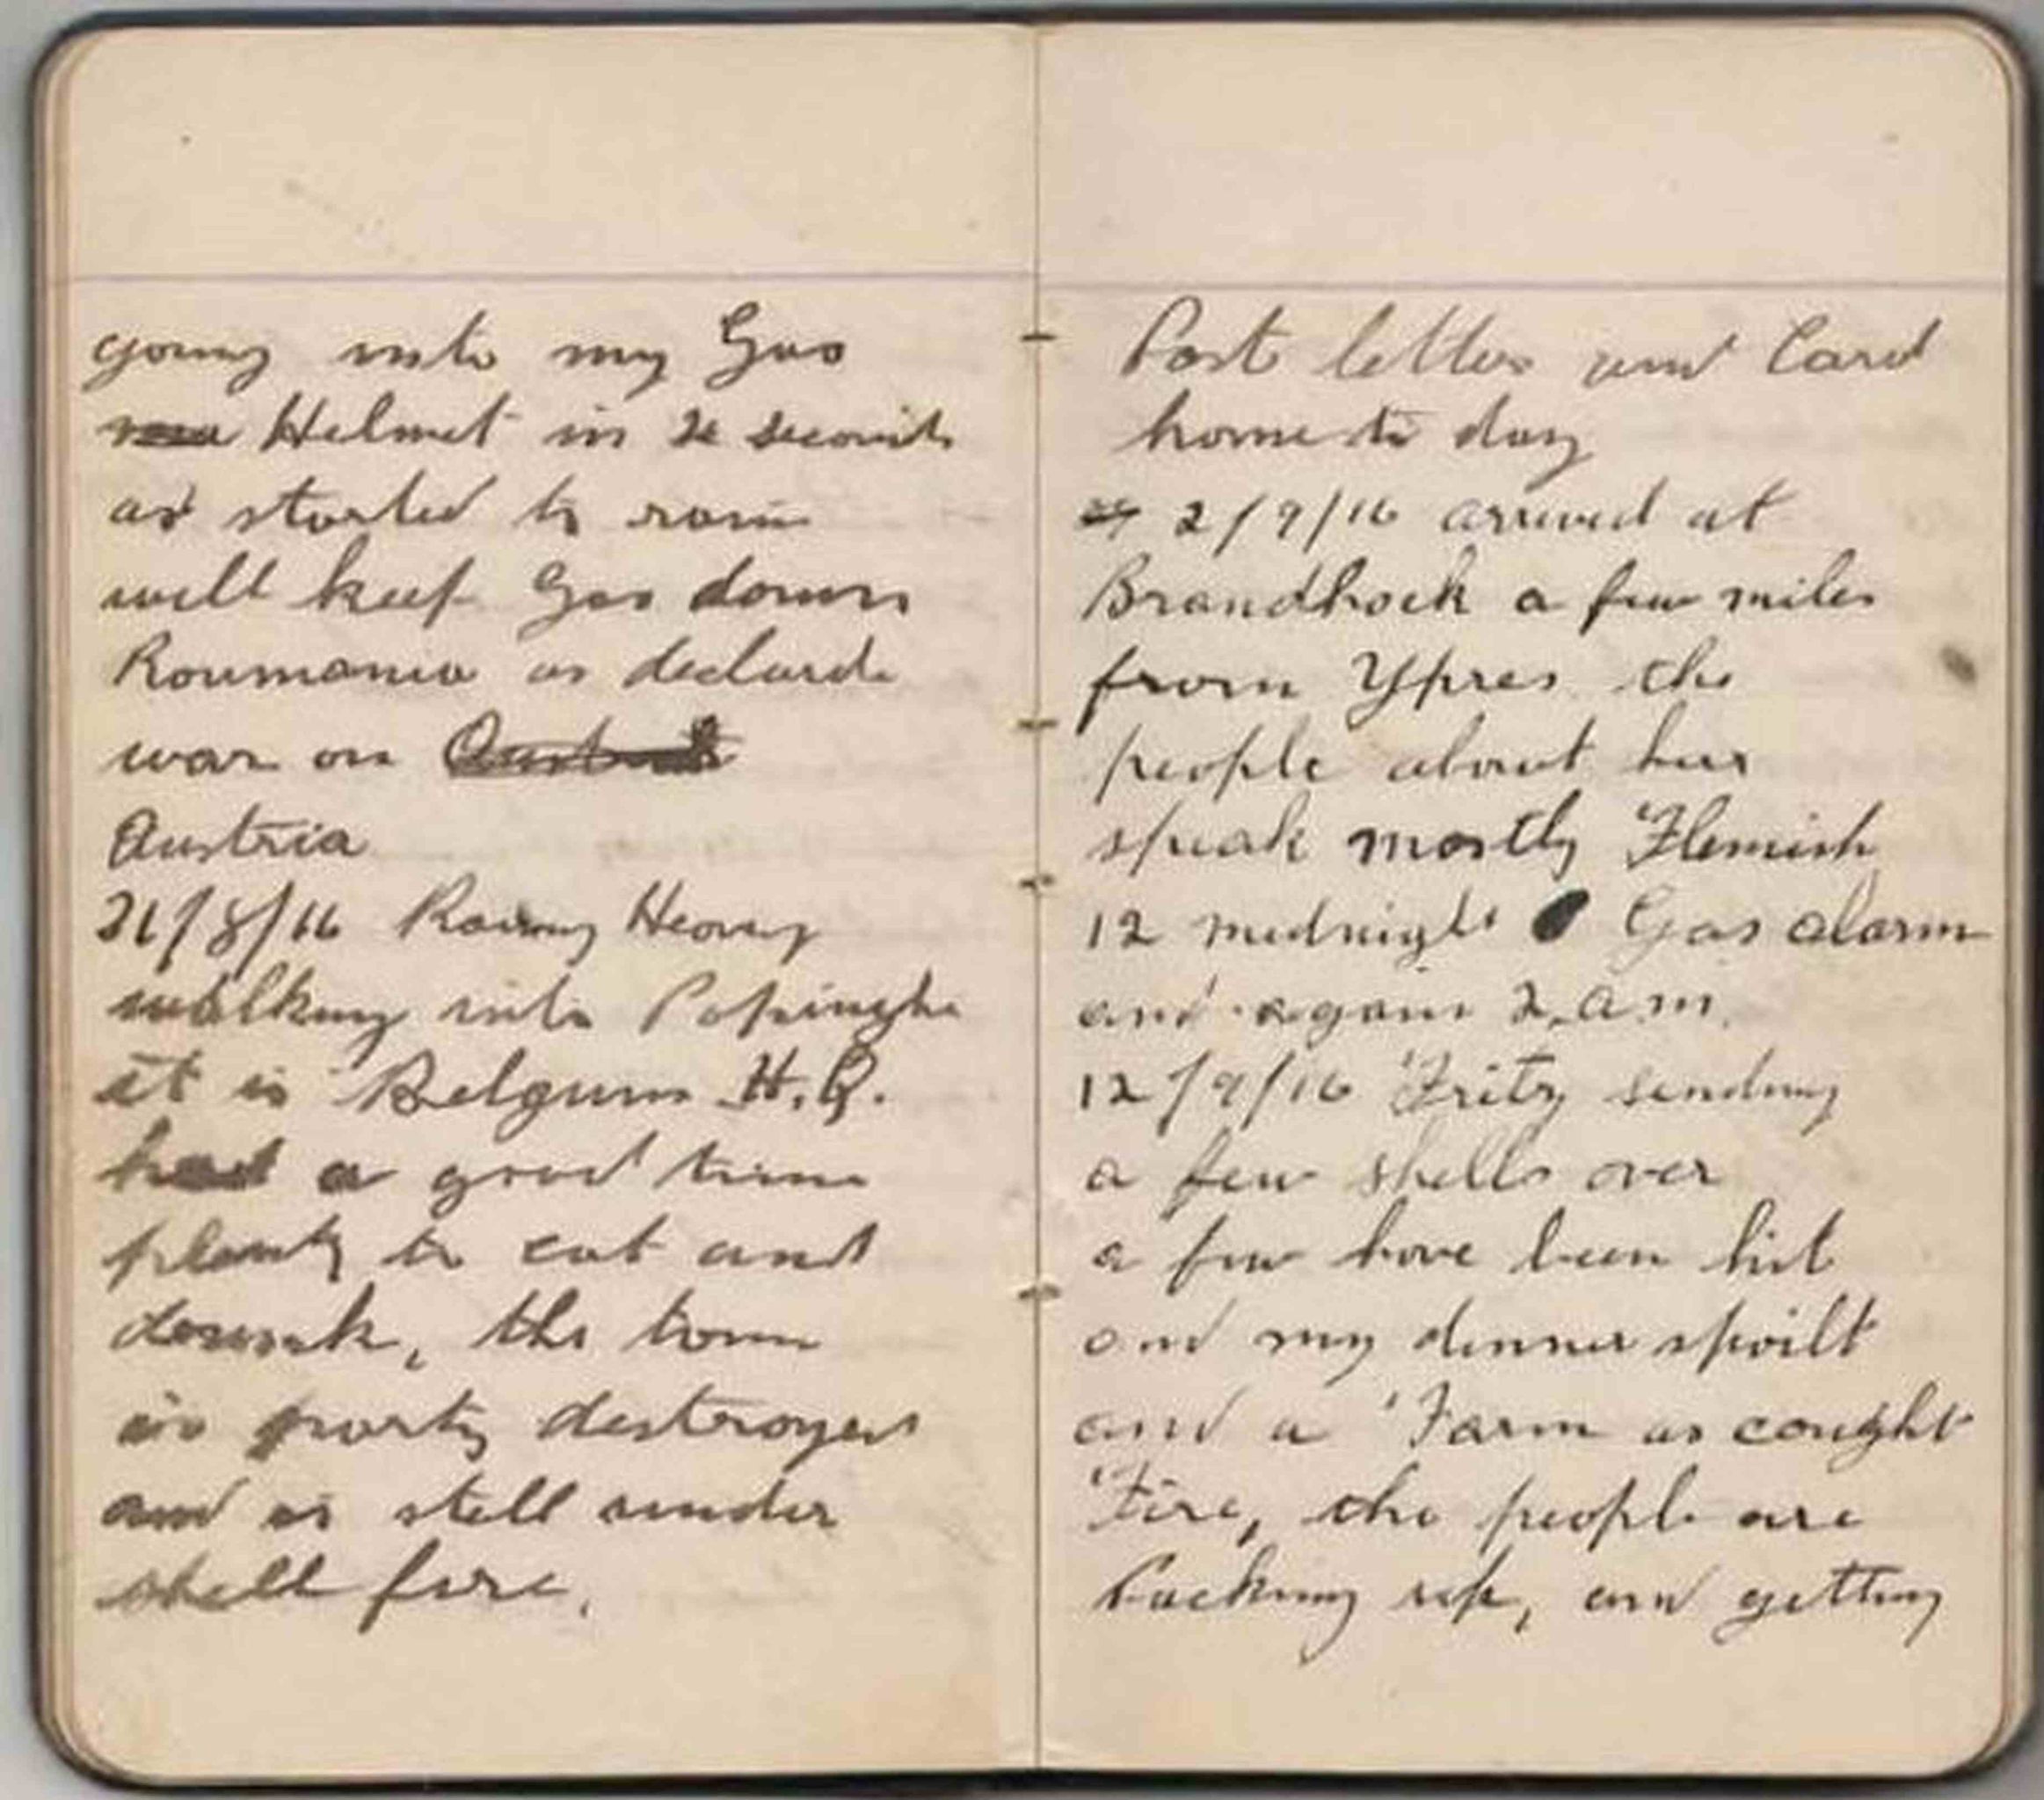 going into my Gas
Helmet in seconds
as started to rain
will keep Gas down
Roumania as declard
war on
Austria
/8/16 Rainy Heavy
walking into Popinghe
it is Belgium H.Q.
had a good time
plenty to eat and
drink, the town
is party destroyed
and is still under
shell fire.
Post letter and Card
home to day
2/9/16 arrived at
Brandhoek a few miles
from Ypres the
people about here
speak mostly Flemish
12 midnight Gas alarm
and again 2.a.m.
12/9/16 Fritz sending
a few shells over
a few have been hit
and my dinner spoilt
and a Farm as caught
Fire, the people are
Packing up, and getting